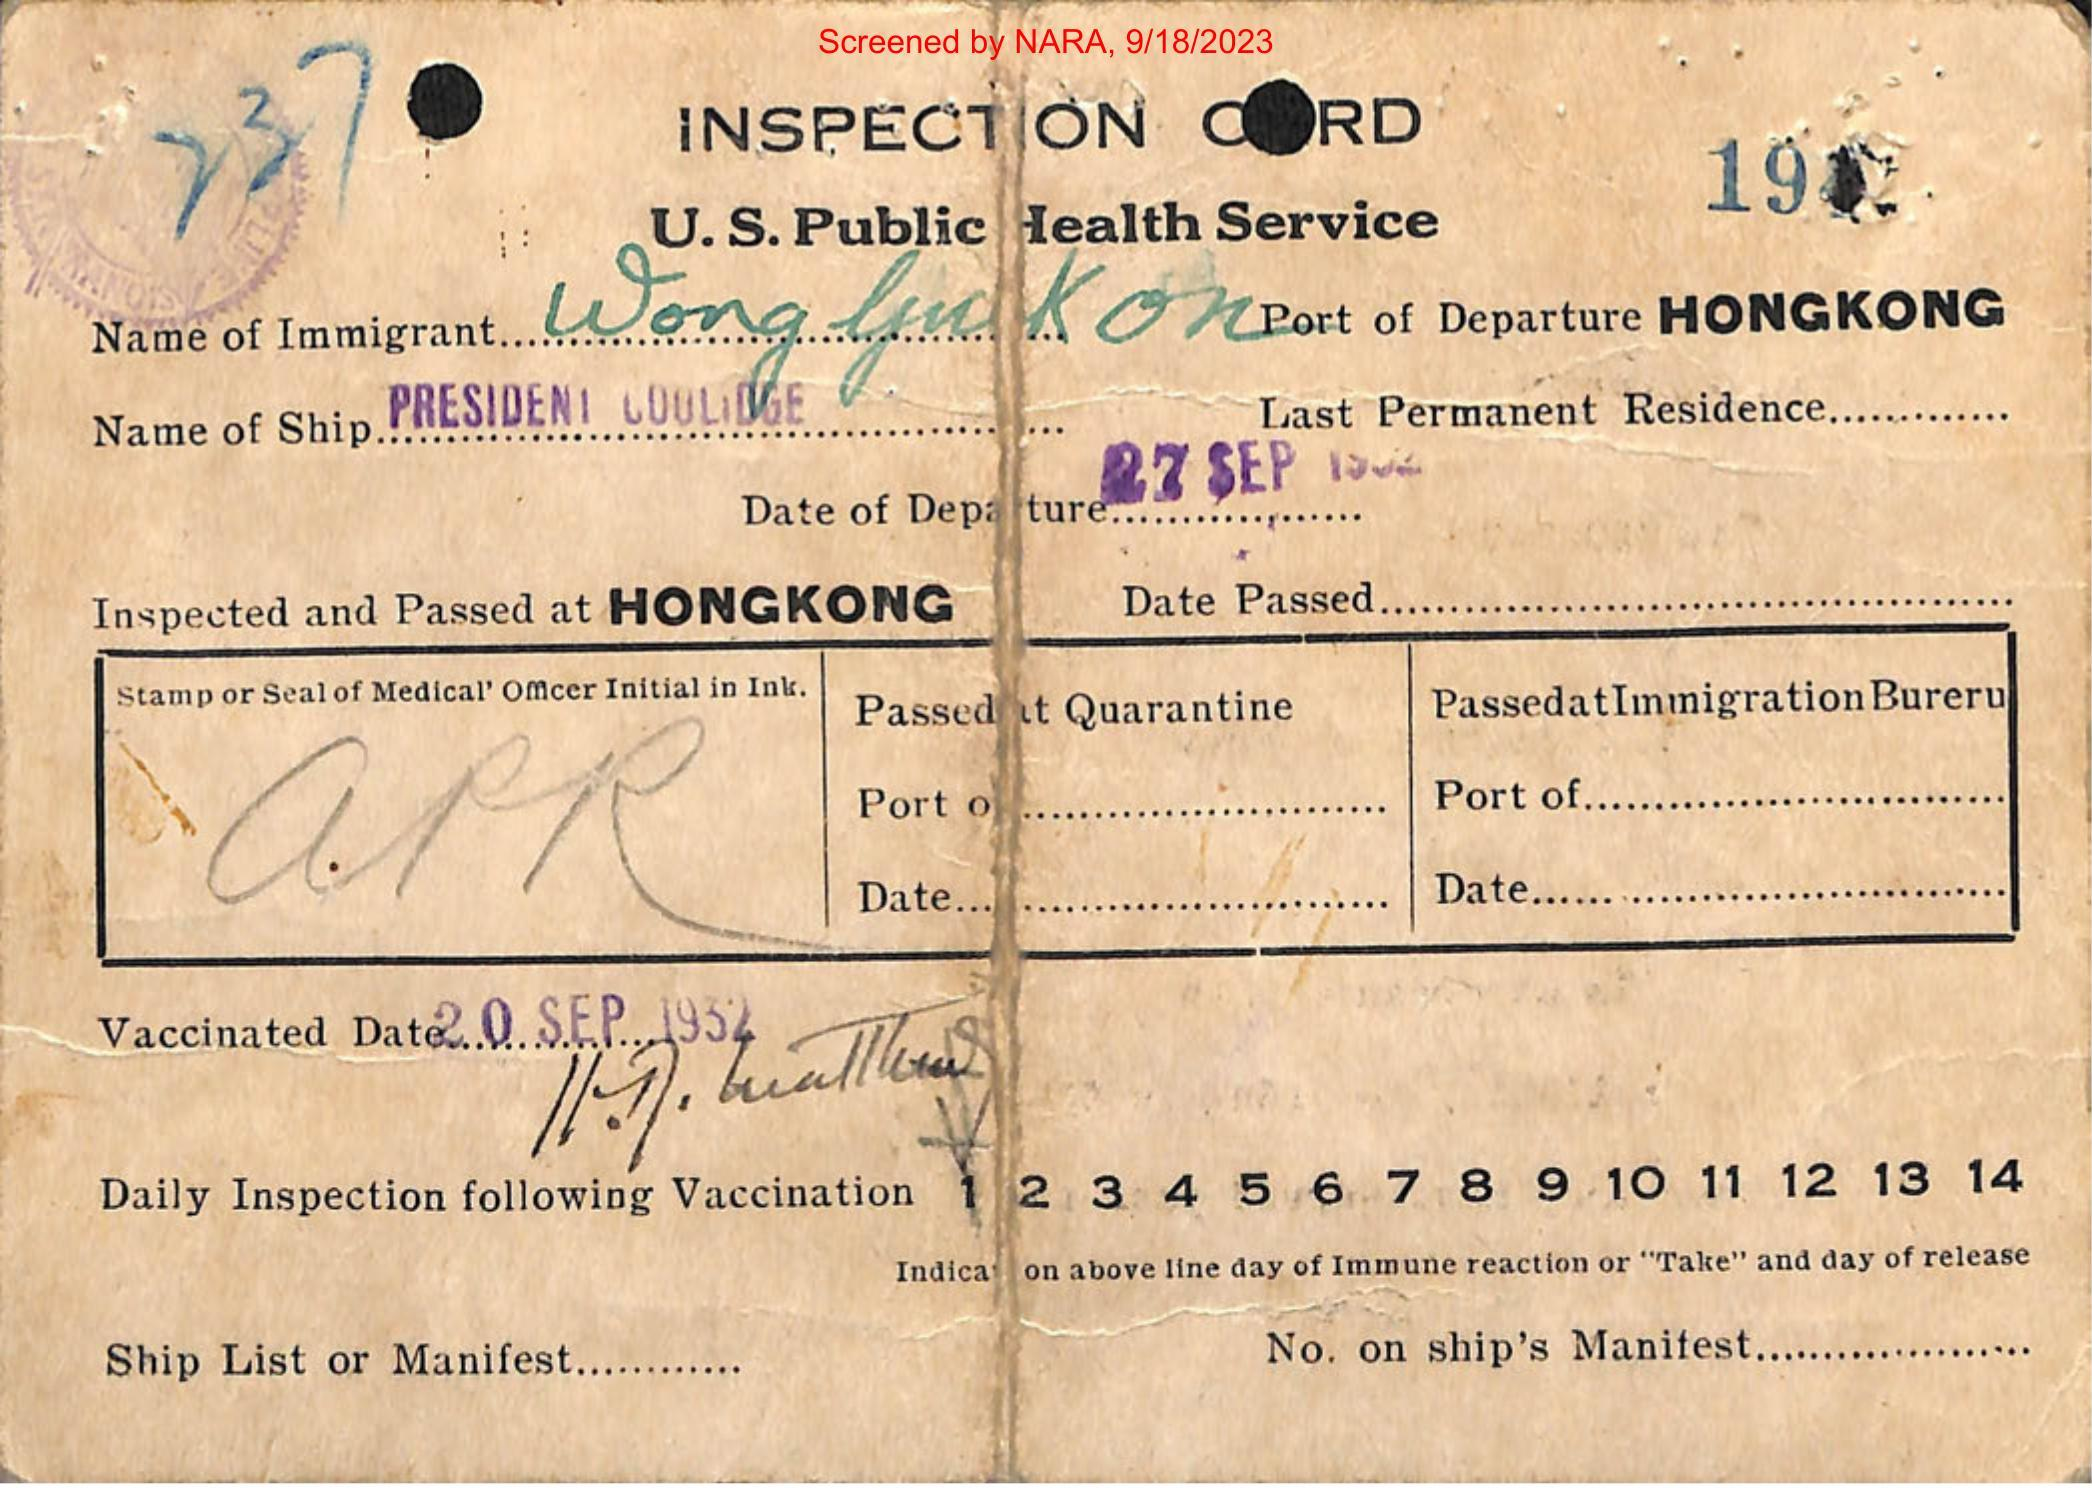 Screened by NARA, 9/18/2023
737
INSPECTION CARD
19
U. S. Public Health Service
Name of Immigrant Wong On Port of Departure HONGKONG
Name of Ship PRESIDENT COOLIDGE Last Permanent Residence
Date of Departure 27 SEP 1932
Inspected and Passed at HONGKONG Date Passed
Stamp or Seal of Medical' Officer Initial in Ink.
Passed at Quarantine
Passed at Immigration Bureru
APR
Port of
Port of
Date
Date
Vaccinated Date 20 SEP 1932
Matthews
Daily Inspection following Vaccination 1 2 3 4 5 6 7 8 9 10 11 12 13 14
Indicate on above line day of Immune reaction or "Take" and day of release
Ship List or Manifest No. on ship's Manifest